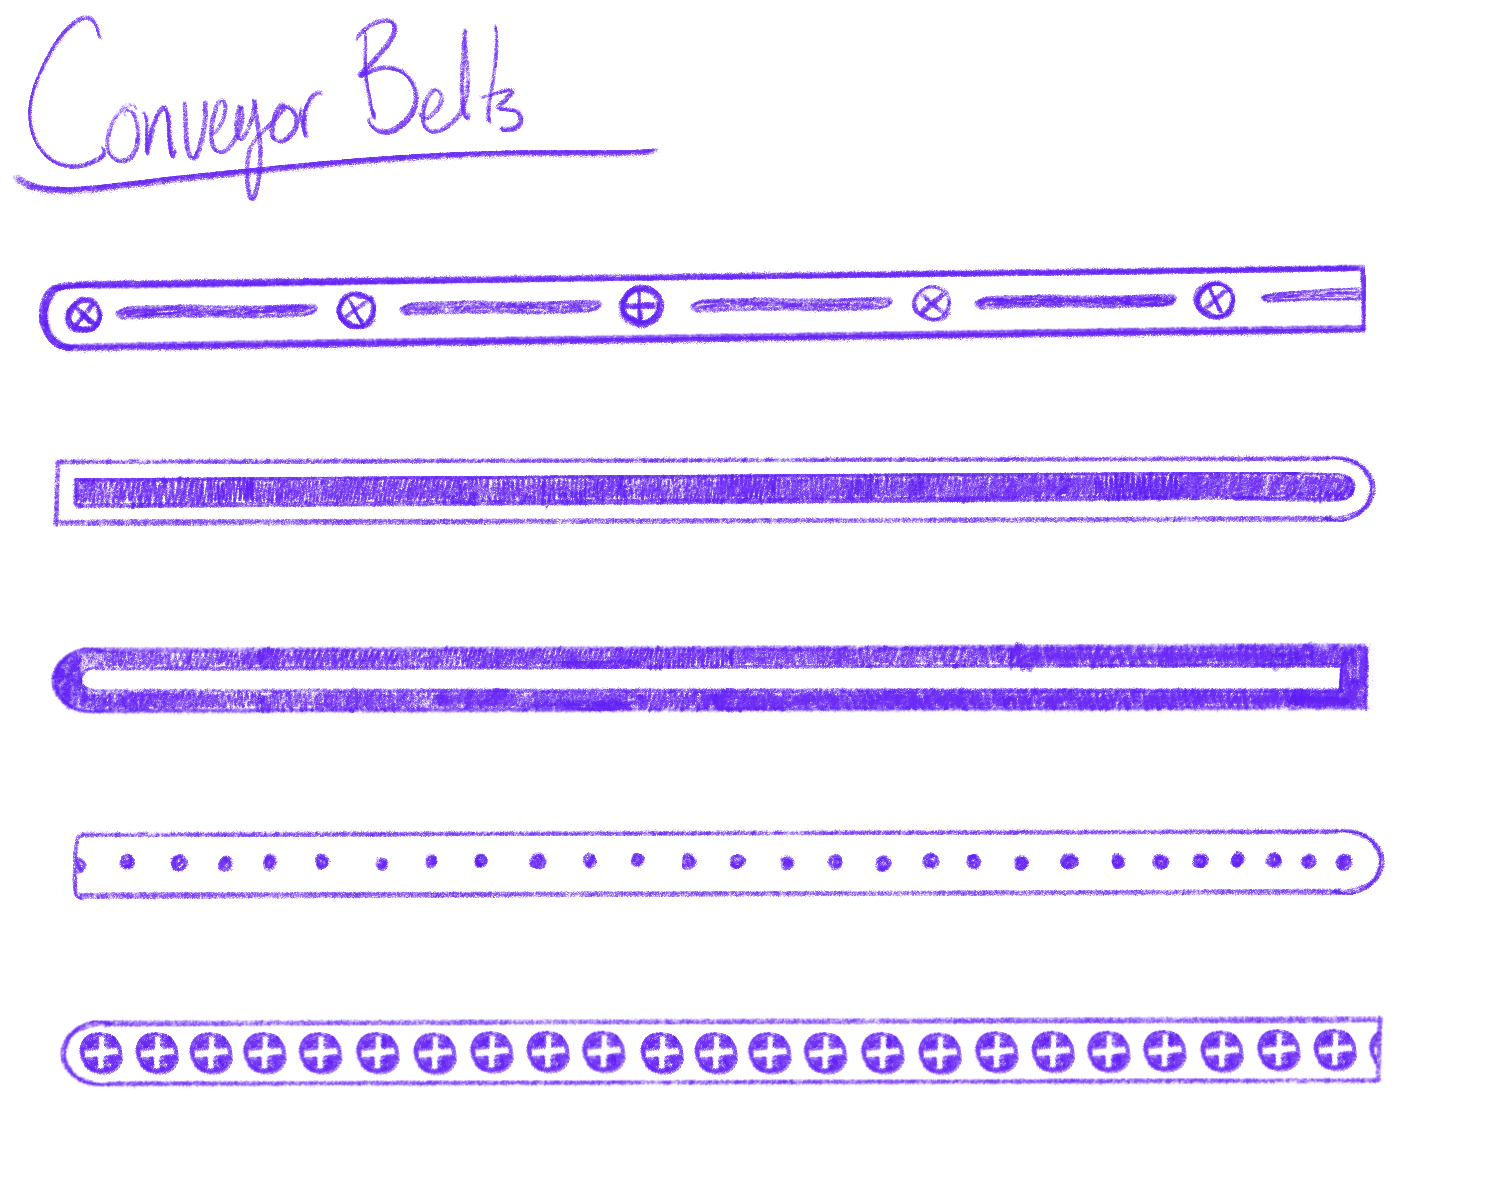 Conveyor Belts